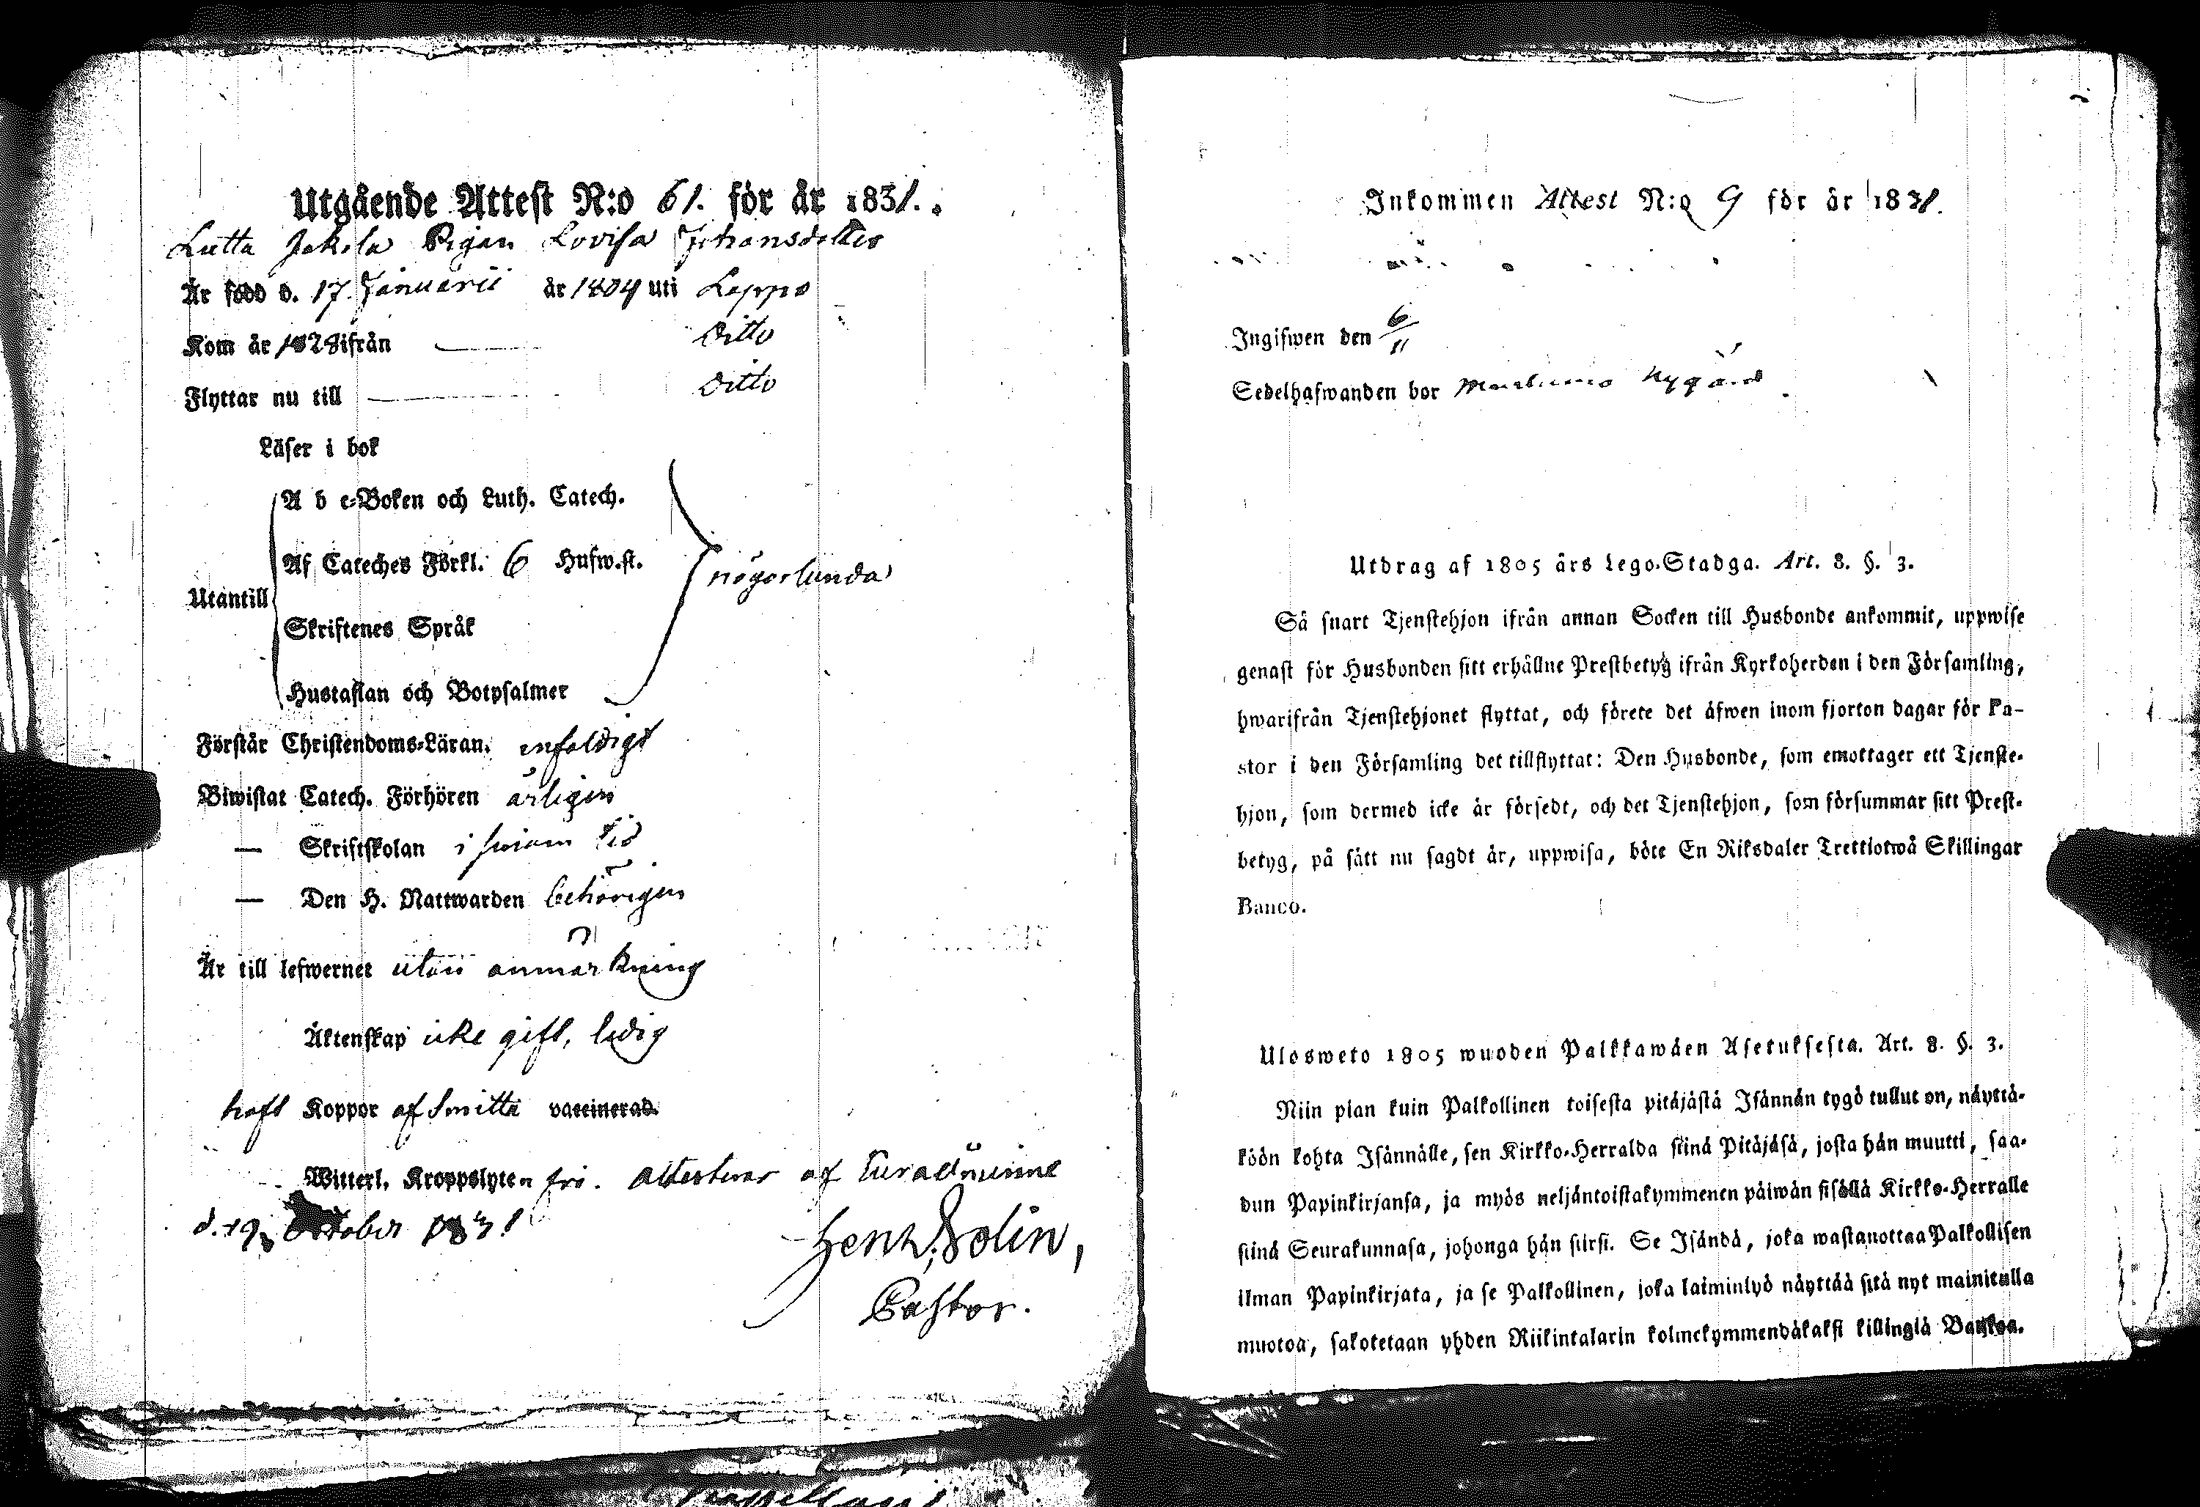 Utgående Attest N:o 61. för år 1831.
Lutta Jokela Pigan Lovisa Johansdotter
Är född d. 17. Januarii år 1804 uti Lappo
Kom år 1828 ifrån Ditto
Flyttar nu till Ditto
Läser i bok
A b c-Boken och Luth. Catech.
Af Cateches Förkl. 6 Hufw.st.
någorlunda
Utantill
Skriftenes Språk
Hustaflan och Botpsalmer
Förstår Christendoms-Läran. enfoldigt
Biwistat Catech. Förhören årligen
— Skriftskolan i sinom tid
— Den H. Nattwarden behörigen
Är till lefwernet utan anmärkning
Äktenskap icke gift, ledig
haft Koppor af Smitta vaccinerad.
Witterl. Kroppslyten fri. attesterar af
d. 19. October 1831
Henr. Solin,
Pastor.
Inkommen Attest N:o 9 för år 1831.
Ingifwen den 6/11
Sedelhafwanden bor Nygård
Utdrag af 1805 års Lego-Stadga. Art. 8. §. 3.
Så snart Tjenstehjon ifrån annan Socken till Husbonde ankommit, uppwise
genast för Husbonden sitt erhållne Prestbetyg ifrån Kyrkoherden i den Församling,
hwarifrån Tjenstehjonet flyttat, och förete det äfwen inom fjorton dagar för Pa-
stor i den Församling det tillflyttat: Den Husbonde, som emottager ett Tjenste-
hjon, som dermed icke är försedt, och det Tjenstehjon, som försummar sitt Prest-
betyg, på sätt nu sagdt är, uppwisa, böte En Riksdaler Trettiotwå Skillingar
Banco.
Ulosweto 1805 wuoden Palkkawäen Asetuksesta. Art. 8. §. 3.
Niin pian kuin Palkollinen toisesta pitäjästä Isännän tygö tullut on, näyttä-
köön kohta Isännälle, sen Kirkko-Herralda siinä Pitäjäsä, josta hän muutti, saa-
dun Papinkirjansa, ja myös neljäntoistakymmenen päiwän sisällä Kirkko-Herralle
siinä Seurakunnasa, johonga hän siirsi. Se Isändä, joka wastanottaa Palkollisen
ilman Papinkirjata, ja se Palkollinen, joka laiminlyö näyttää sitä nyt mainitulla
muotoa, sakotetaan yhden Riikintalarin kolmekymmendäkaksi killingiä Bankoa.